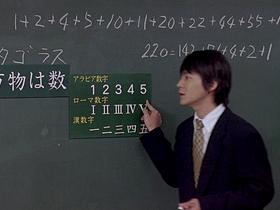 1+2+4+5+10+11+20+22+44+55+1
220=142+71+4+2+1
タゴラス
万物は数
アラビア数字
1 2 3 4 5
ローマ数字
I II III IV V
漢数字
一二三四五